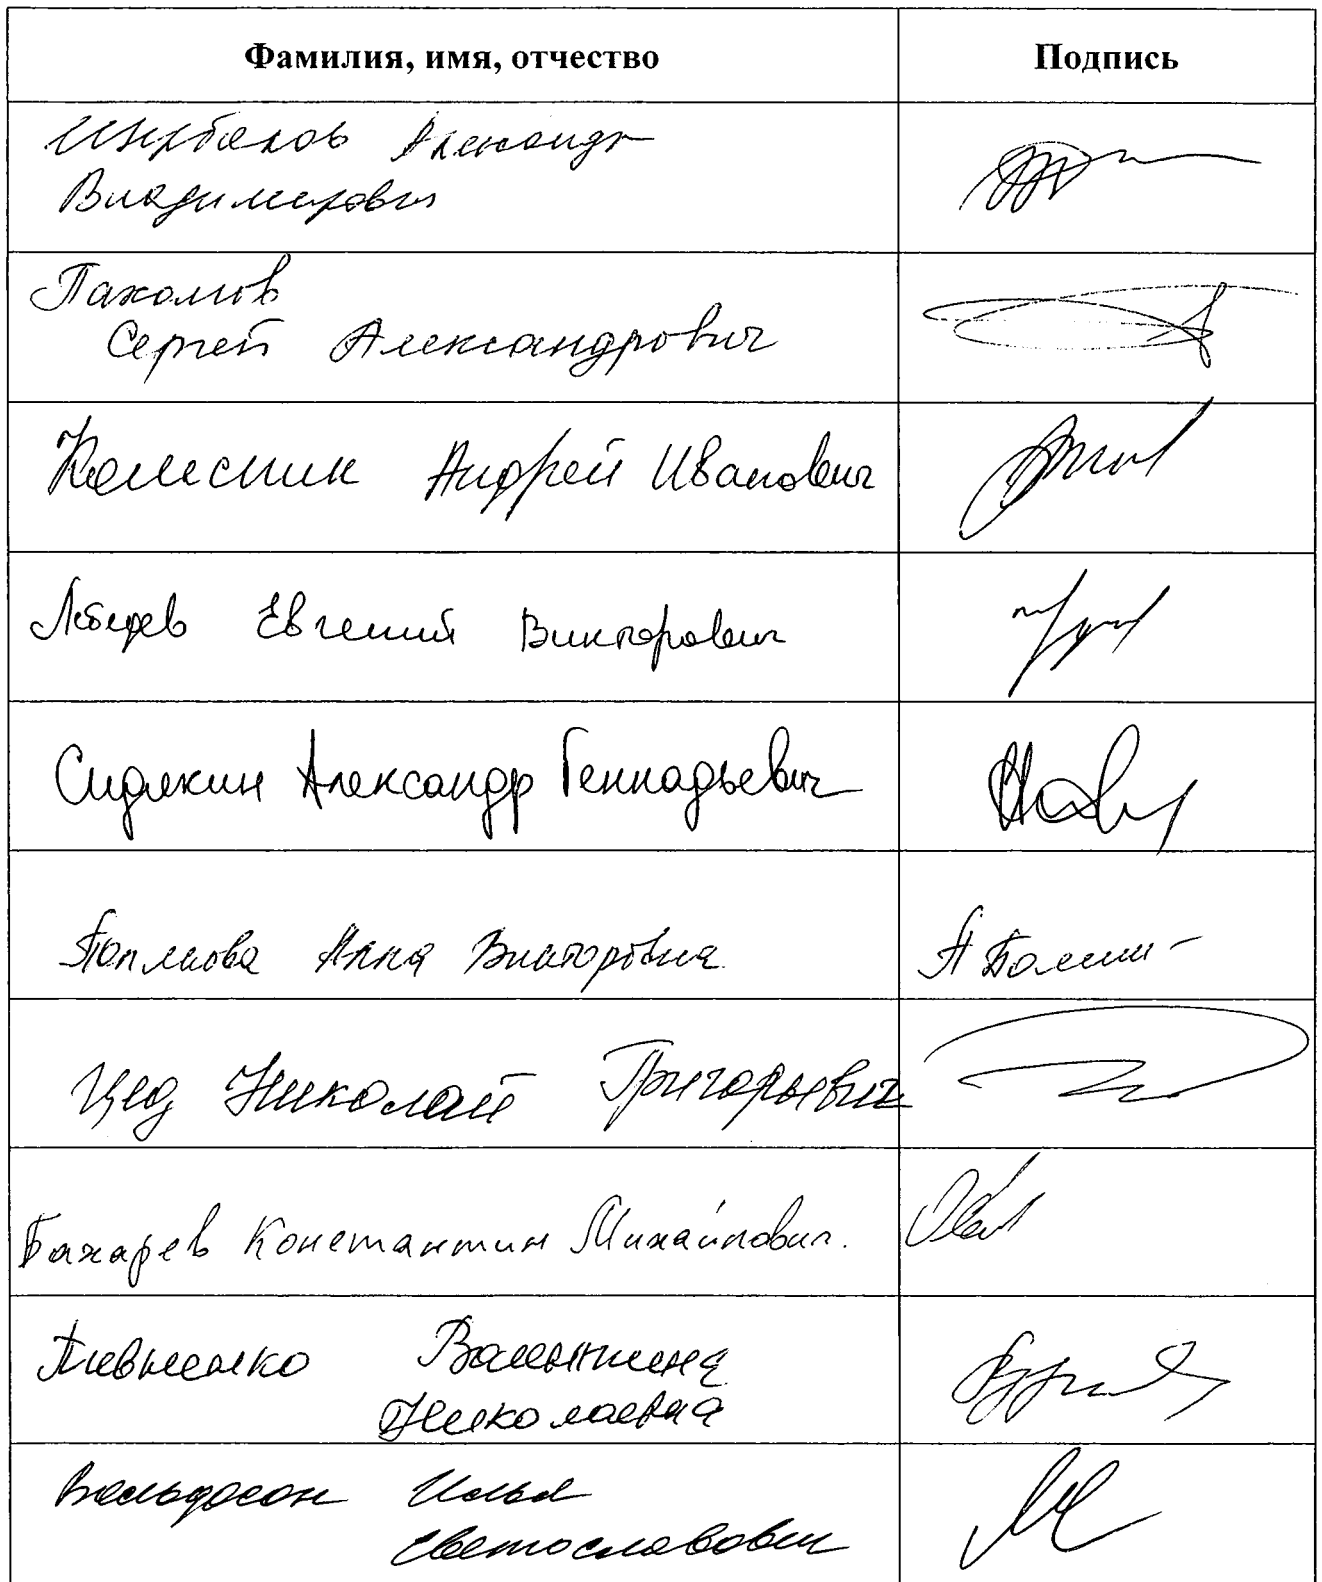 Фамилия, имя, отчество
Подпись
Щербаков Александр
Владимирович
Пахомов
Сергей Александрович
Колесник Андрей Иванович
Лебедев Евгений Викторович
Сидякин Александр Геннадьевич
Анна Викторовна
Цед Николай Григорьевич
Бахарев Константин Михайлович.
Пивненко Валентина
Николаевна
Вольфсон Илья
Светославович